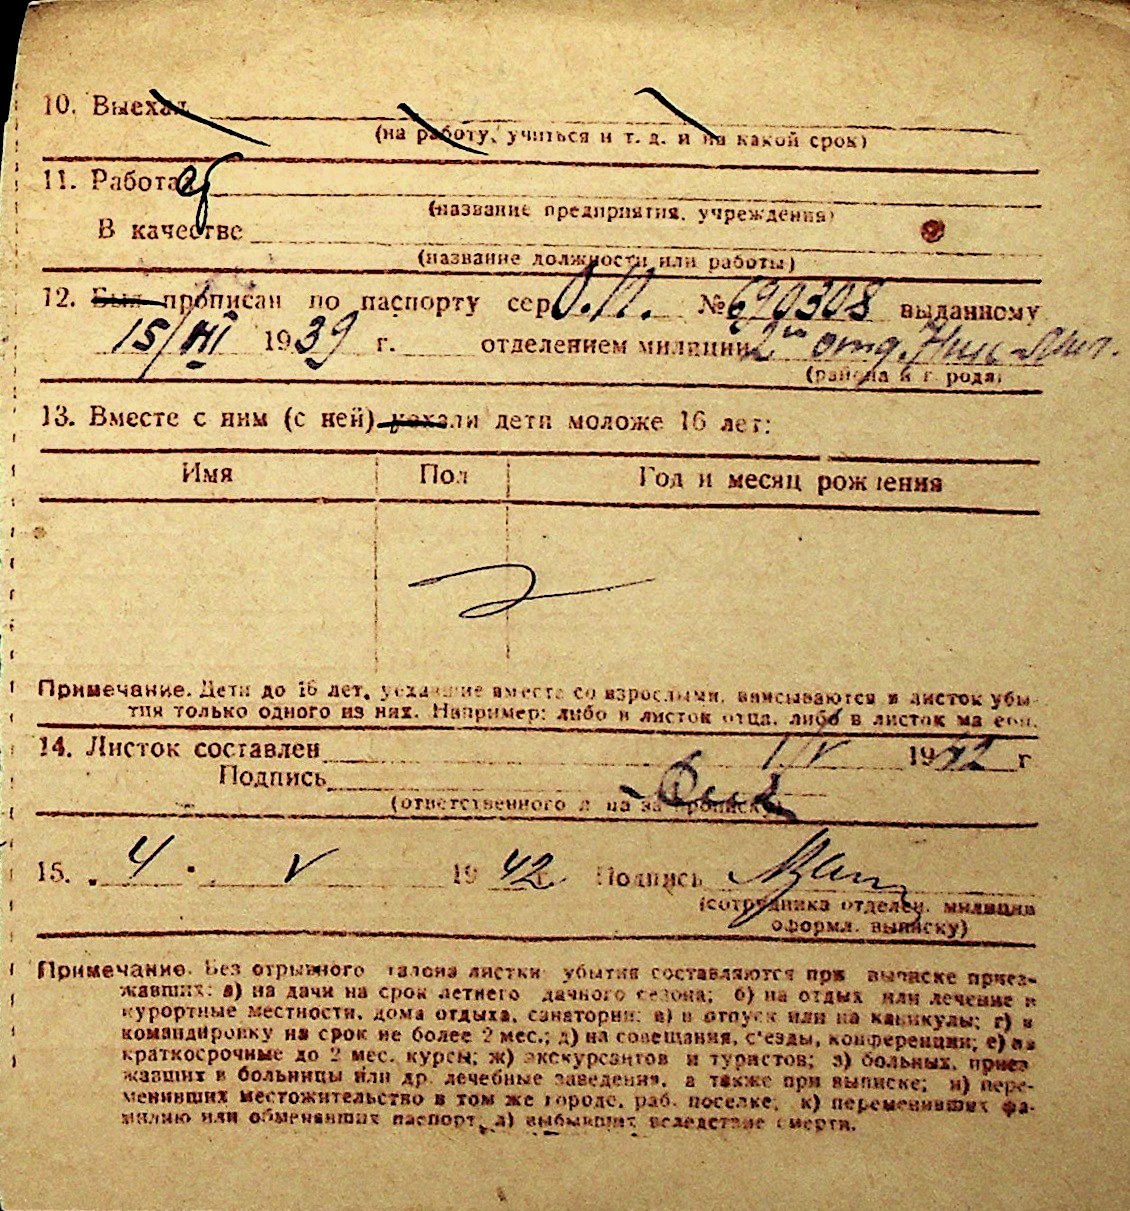 10. Выехал
(на работу, учиться и т. д. и на какой срок)
11. Работал
(название предприятия, учреждения)
В качестве
(название должности или работы)
12. Был прописан по паспорту сер. О.П. № 690308 выданному
15/VII 1939 г. отделением милиции 2м отд.
(района и города)
13. Вместе с ним (с ней) уехали дети моложе 16 лет:
Имя Пол Год и месяц рождения
Примечание. Дети до 16 лет, уехавшие вместе со взрослыми, вписываются в листок убы-
тия только одного из них. Например: либо в листок отца, либо в листок матери.
14. Листок составлен 1/V 1942 г
Подпись
(ответственного лица за прописку)
15. 4 V 1942 г. Подпись
(сотрудника отделен. милиции
оформл. выписку)
Примечание. Без отрывного талона листки убытия составляются при выписке приез-
жавших: а) на дачи на срок летнего дачного сезона; б) на отдых или лечение в
курортные местности, дома отдыха, санатории; в) в отпуск или на каникулы; г) в
командировку на срок не более 2 мес.; д) на совещания, с'езды, конференции; е) на
краткосрочные до 2 мес. курсы; ж) экскурсантов и туристов; з) больных, приез
жавших в больницы или др. лечебные заведения, а также при выписке; и) пере-
менивших местожительство в том же городе, раб. поселке, к) переменивших фа-
милию или обменявших паспорт, л) выбывших вследствие смерти.